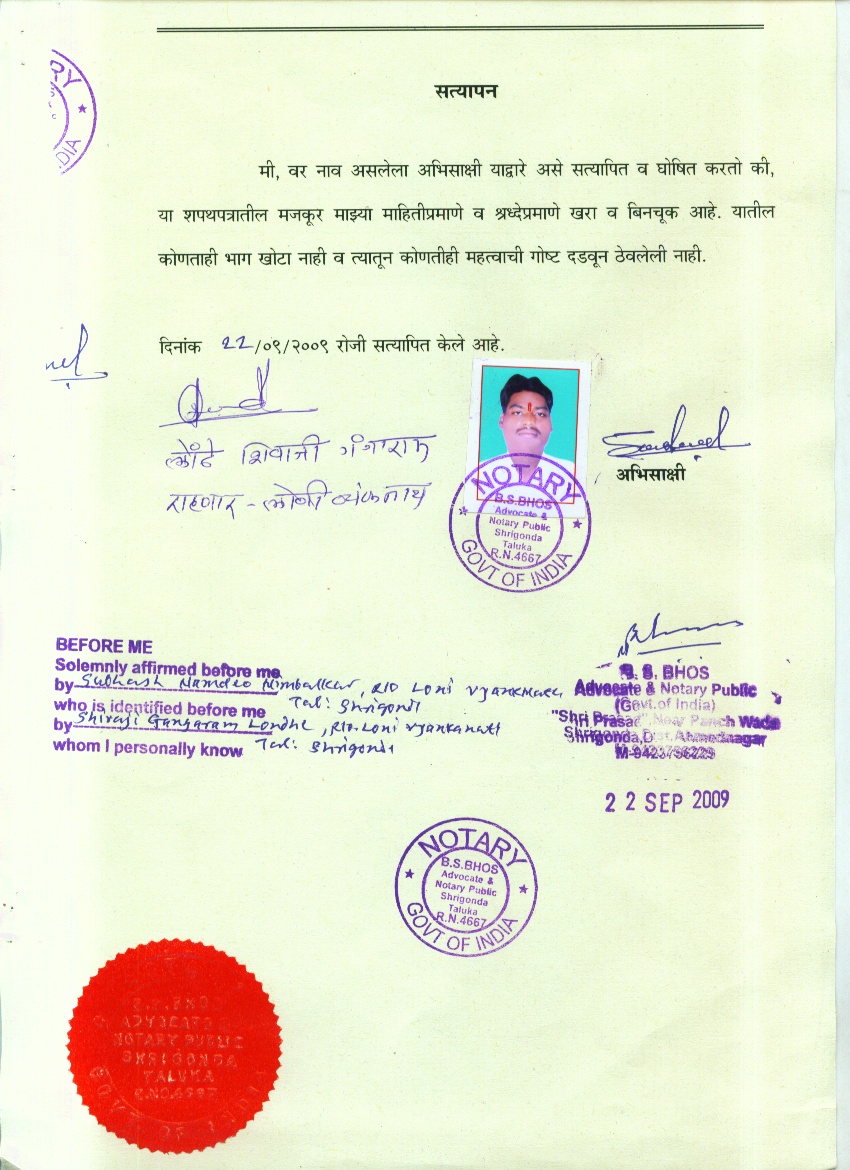 RY
DIA
सत्यापन
मी, वर नाव असलेला अभिसाक्षी याद्वारे असे सत्यापित व घोषित करतो की,
या शपथपत्रातील मजकूर माझ्या माहितीप्रमाणे व श्रध्देप्रमाणे खरा व बिनचूक आहे. यातील
कोणताही भाग खोटा नाही व त्यातून कोणतीही महत्वाची गोष्ट दडवून ठेवलेली नाही.
दिनांक 22/०९/२००९ रोजी सत्यापित केले आहे.
लोंढे शिवाजी गंगाराम
राहणार - लोणी व्यंकनाथ
अभिसाक्षी
NOTARY
B.S.BHOS
Advocate &
Notary Public
Shrigonda
Taluka
R.N.4667
GOVT OF INDIA
BEFORE ME
Solemnly affirmed before me
by Subhash Namdeo Nimbalkar, R/O Loni
who is identified before me Tal: Shrigonda
by Shivaji Gangaram Londhe, R/O. Loni Vyankanath
whom I personally know Tal: Shrigonda
B. S. BHOS
Advocate & Notary Public
(Govt.of India)
"Shri Prasad", Near Panch Wada
Shrigonda, Dist. Ahmednagar
22 SEP 2009
NOTARY
B.S.BHOS
Advocate &
Notary Public
Shrigonda
Taluka
R.N.4667
GOVT OF INDIA
ADVOCATE &
NOTARY PUBLIC
SHRIGONDA
TALUKA